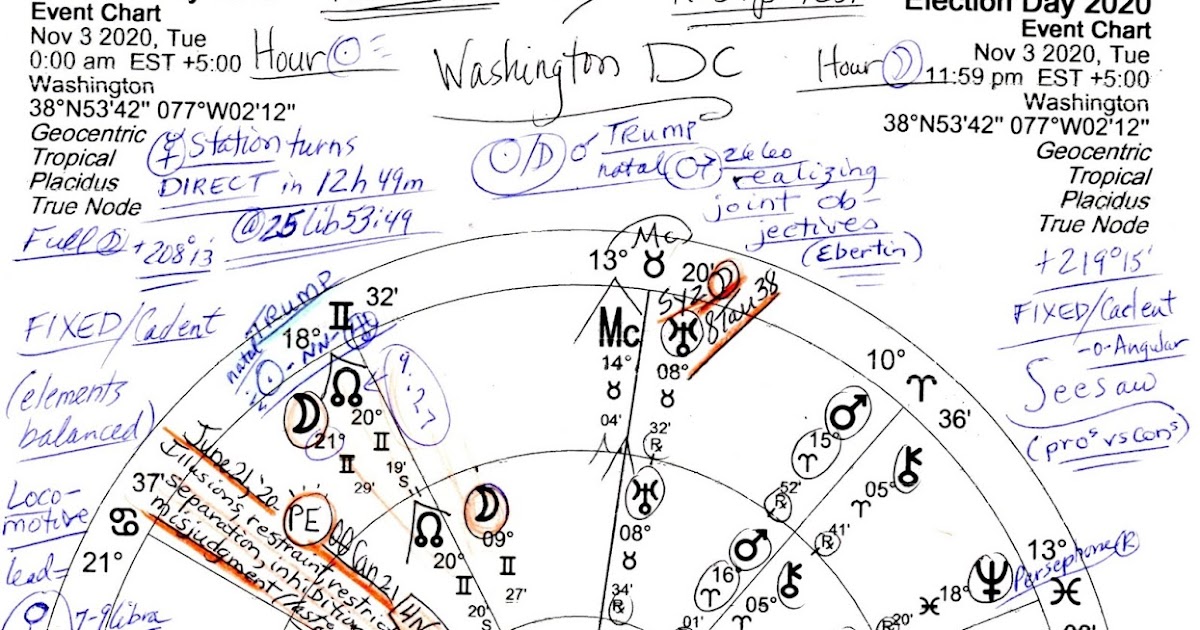 Event Chart
Nov 3 2020, Tue
0:00 am EST +5:00
Washington
38°N53'42" 077°W02'12"
Geocentric
Tropical
Placidus
True Node
Hour ☉ =
Washington DC
Hour ☽
Election Day 2020
Event Chart
Nov 3 2020, Tue
11:59 pm EST +5:00
Washington
38°N53'42" 077°W02'12"
Geocentric
Tropical
Placidus
True Node
☿ Station turns
DIRECT in 12h 49m
@25 Lib 53:49
Full ☽ +208°13
☉/☽ ☌ TRUMP
natal ♂ 26 Leo
realizing
joint ob-
jectives
(Ebertin)
+219°15'
FIXED/Cadent
-0-Angular
Seesaw
(pros vs cons)
FIXED/Cadent
(elements
balanced)
Loco-
motive
lead=
♀ 7-9 libra
TRUMP
natal
☉-NN-♅
9:27
June 21, '20-
Illusions, restraint, restric
separation, inhibition
misjudgment
PE
00Can21
Mc
13° ♉ 20'
SYZ ☽
8Tau38
Mc
14°
♉
04'
♅
08°
♉
32'
℞
♅
08°
♉
34'
℞
18° ♊ 32'
☽
21°
♊
29'
☊
20°
♊
19'
S
☊
20°
♊
20'
S
☽
09°
♊
27'
37'
♋
21°
10° ♈ 36'
♂
15°
♈
52'
℞
⚷
05°
♈
41'
℞
♂
16°
♈
01'
⚷
05°
♈
13° ♓
Persephone ℞
♆
18°
♓
20'
℞